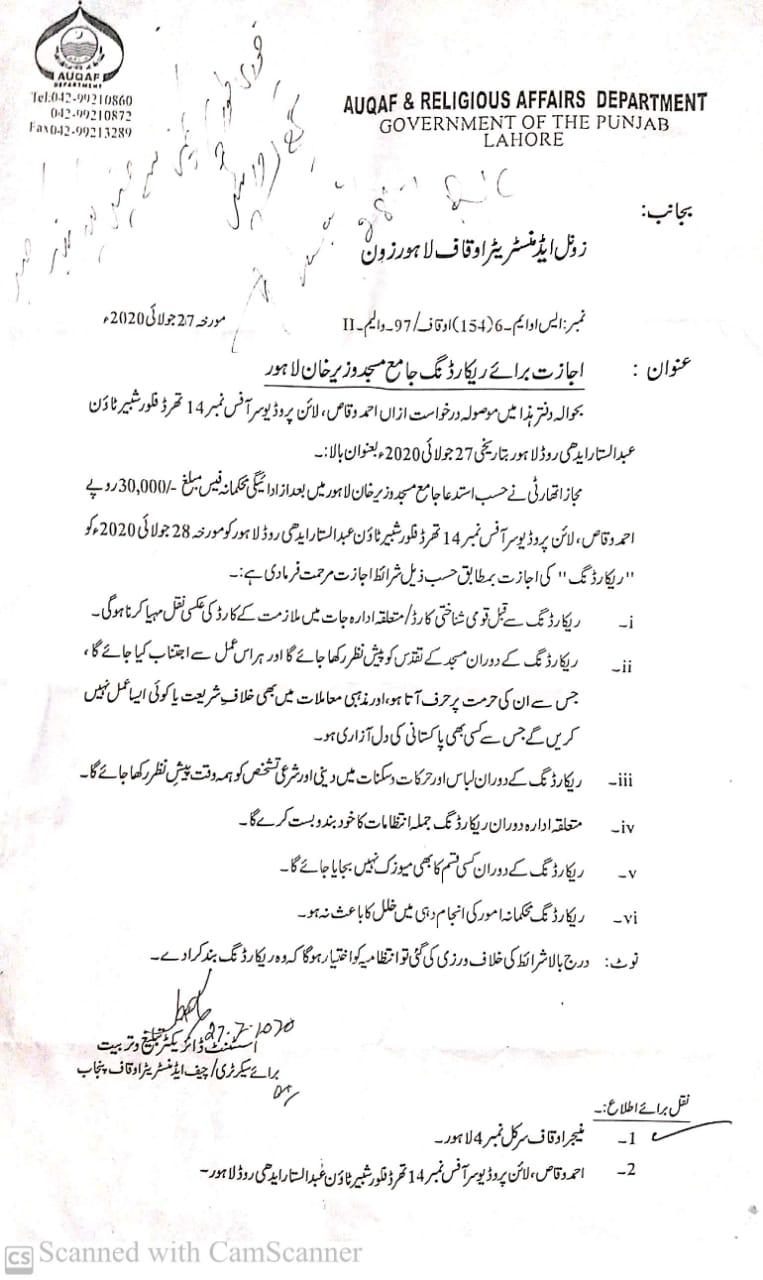 AUQAF
DEPARTMENT
Tel:042-99210860
042-99210872
Fax042-99213289
AUQAF & RELIGIOUS AFFAIRS DEPARTMENT
GOVERNMENT OF THE PUNJAB
LAHORE
بجانب:
زونل ایڈمنسٹریٹر اوقاف لاہور زون
نمبر: ایس او ایم۔6(154) اوقاف/97۔والیم۔II مورخہ 27 جولائی 2020ء
عنوان : اجازت برائے ریکارڈنگ جامع مسجد وزیر خان لاہور
بحوالہ دفتر ہذا میں موصولہ درخواست ازاں احمد وقاص، لائن پروڈیوسر آفس نمبر 14 تھرڈ فلور شبیر ٹاؤن
عبدالستار ایدھی روڈ لاہور بتاریخی 27 جولائی 2020ء بعنوان بالا:۔
مجاز اتھارٹی نے حسب استدعا جامع مسجد وزیر خان لاہور میں بعد از ادائیگی محکمانہ فیس مبلغ -/30,000 روپے
احمد وقاص، لائن پروڈیوسر آفس نمبر 14 تھرڈ فلور شبیر ٹاؤن عبدالستار ایدھی روڈ لاہور کو مورخہ 28 جولائی 2020ء کو
"ریکارڈنگ" کی اجازت بمطابق حسب ذیل شرائط اجازت مرحمت فرما دی ہے:۔
i۔ ریکارڈنگ سے قبل قومی شناختی کارڈ/متعلقہ ادارہ جات میں ملازمت کے کارڈ کی عکسی نقل مہیا کرنا ہوگی۔
ii۔ ریکارڈنگ کے دوران مسجد کے تقدس کو پیش نظر رکھا جائے گا اور ہر اس عمل سے اجتناب کیا جائے گا،
جس سے ان کی حرمت پر حرف آتا ہو، اور مذہبی معاملات میں بھی خلافِ شریعت یا کوئی ایسا عمل نہیں
کریں گے جس سے کسی بھی پاکستانی کی دل آزاری ہو۔
iii۔ ریکارڈنگ کے دوران لباس اور حرکات وسکنات میں دینی اور شرعی تشخص کو ہمہ وقت پیشِ نظر رکھا جائے گا۔
iv۔ متعلقہ ادارہ دوران ریکارڈنگ جملہ انتظامات کا خود بندوبست کرے گا۔
v۔ ریکارڈنگ کے دوران کسی قسم کا بھی میوزک نہیں بجایا جائے گا۔
vi۔ ریکارڈنگ محکمانہ امور کی انجام دہی میں خلل کا باعث نہ ہو۔
نوٹ: درج بالا شرائط کی خلاف ورزی کی گئی تو انتظامیہ کو اختیار ہوگا کہ وہ ریکارڈنگ بند کرا دے۔
27-7-2020
اسسٹنٹ ڈائریکٹر تبلیغ و تربیت
برائے سیکرٹری/چیف ایڈمنسٹریٹر اوقاف پنجاب
نقل برائے اطلاع:۔
1۔ منیجر اوقاف سرکل نمبر 4 لاہور۔
2۔ احمد وقاص، لائن پروڈیوسر آفس نمبر 14 تھرڈ فلور شبیر ٹاؤن عبدالستار ایدھی روڈ لاہور۔
CS Scanned with CamScanner